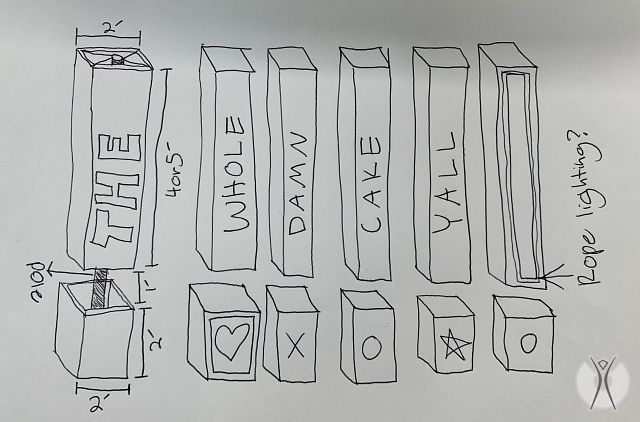 2'
THE
4 or 5'
pole
1'
2'
2'
WHOLE
DAMN
CAKE
YALL
Rope lighting?
X
O
O